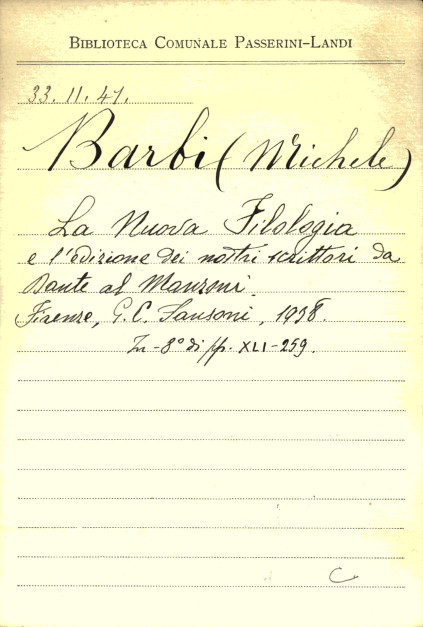 BIBLIOTECA COMUNALE PASSERINI-LANDI
33.11.41.
Barbi (Michele)
La Nuova Filologia
e l'edizione dei nostri scrittori da
Dante al Manzoni.
Firenze, G. C. Sansoni, 1938.
In-8° di pp. XLI-259.
C